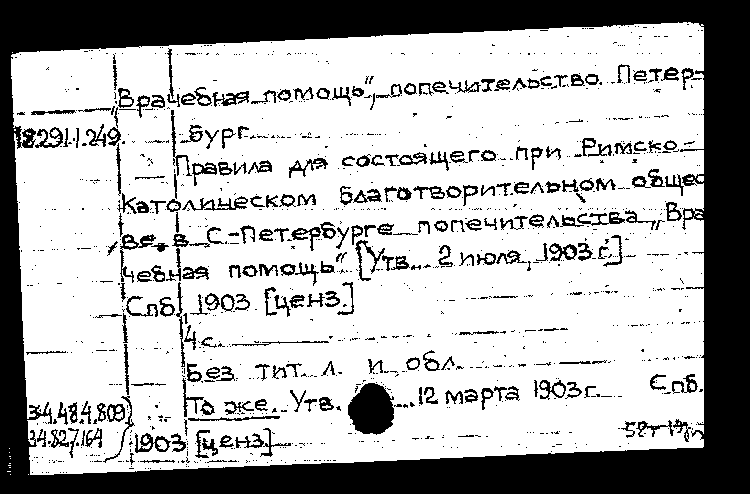 „Врачебная помощь“, попечительство. Петер-
18.291.1.249. бург.
Правила для состоящего при Римско-
Католическом благотворительном общес
ве в С.-Петербурге попечительства „Вра
чебная помощь“ [Утв. 2 июля, 1903 г.]
Спб., 1903 [ценз.]
4 с.
Без тит. л. и обл.
34.48.4.809 То же. Утв. 12 марта 1903 г. Спб.
34.82.7.164 1903 [ценз.]